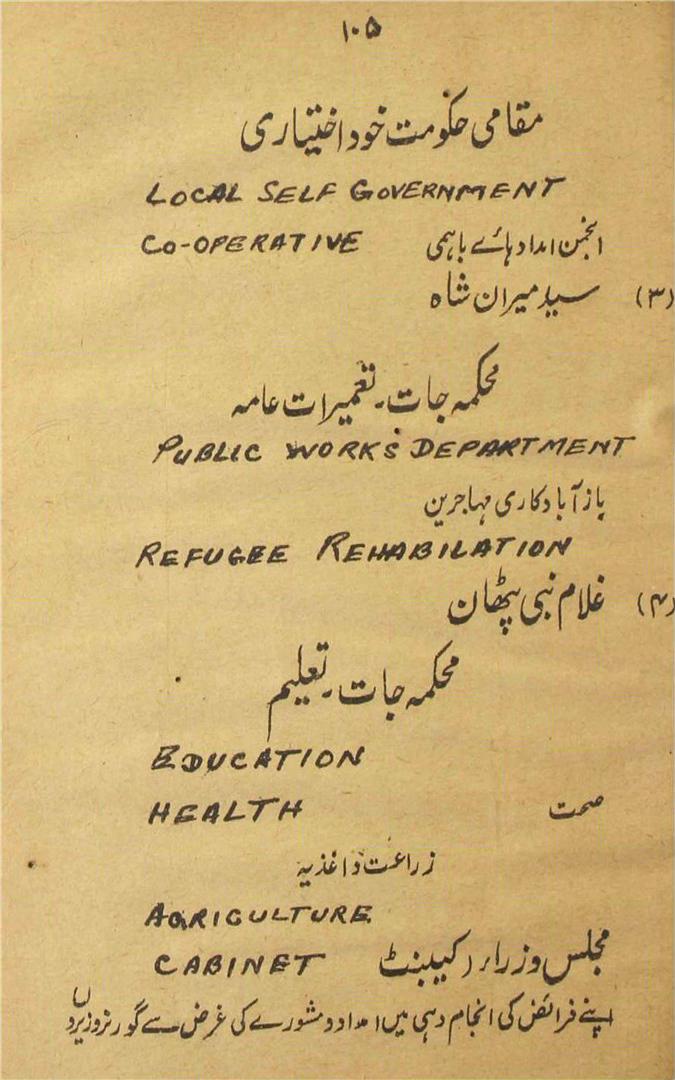 ۱۰۵
مقامی حکومت خود اختیاری
LOCAL SELF GOVERNMENT
انجمن امداد ہائے باہمی CO-OPERATIVE
(۳) سید میران شاہ
محکمہ جات۔ تعمیرات عامہ
PUBLIC WORKS DEPARTMENT
باز آبادکاری مہاجرین
REFUGEE REHABILATION
(۴) غلام نبی پٹھان
محکمہ جات۔ تعلیم
EDUCATION
صحت HEALTH
زراعت و اغذیہ
AGRICULTURE
مجلس وزراء (کیبنٹ CABINET
اپنے فرائض کی انجام دہی میں امداد و مشورے کی غرض سے گورنر وزیروں